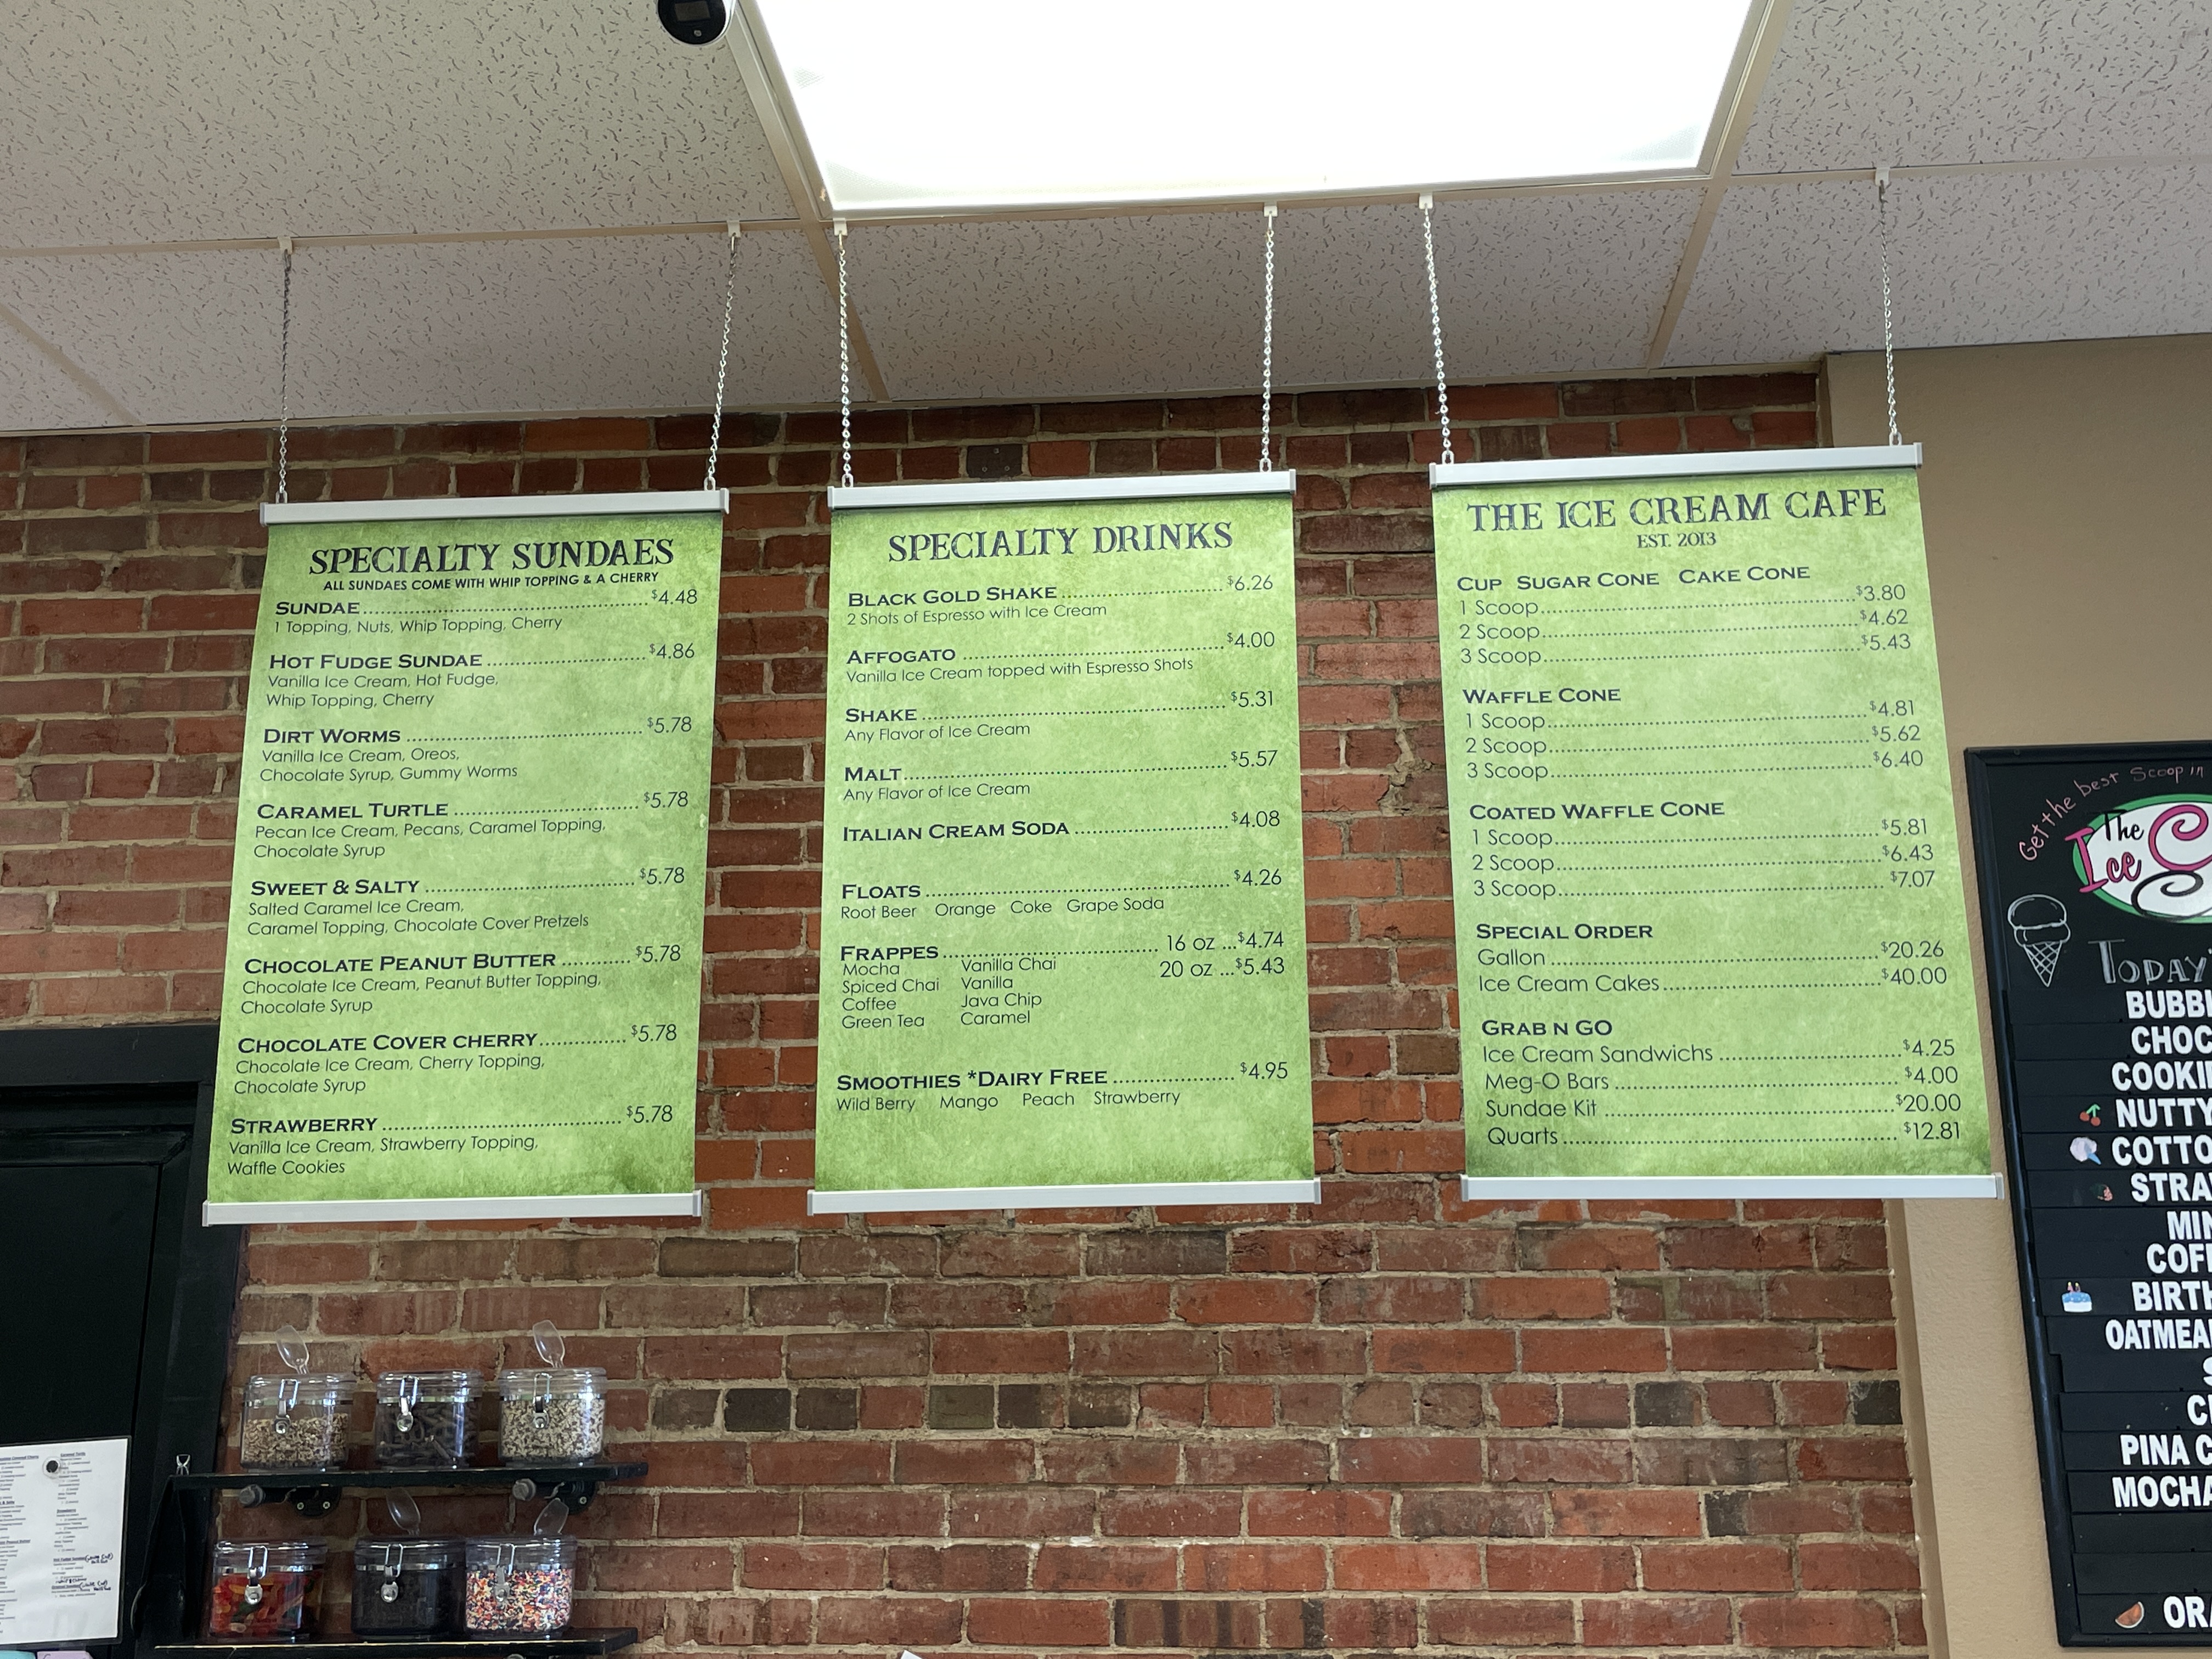 SPECIALTY SUNDAES
ALL SUNDAES COME WITH WHIP TOPPING & A CHERRY
SUNDAE $4.48
1 Topping, Nuts, Whip Topping, Cherry
HOT FUDGE SUNDAE $4.86
Vanilla Ice Cream, Hot Fudge,
Whip Topping, Cherry
DIRT WORMS $5.78
Vanilla Ice Cream, Oreos,
Chocolate Syrup, Gummy Worms
CARAMEL TURTLE $5.78
Pecan Ice Cream, Pecans, Caramel Topping,
Chocolate Syrup
SWEET & SALTY $5.78
Salted Caramel Ice Cream,
Caramel Topping, Chocolate Cover Pretzels
CHOCOLATE PEANUT BUTTER $5.78
Chocolate Ice Cream, Peanut Butter Topping,
Chocolate Syrup
CHOCOLATE COVER CHERRY $5.78
Chocolate Ice Cream, Cherry Topping,
Chocolate Syrup
STRAWBERRY $5.78
Vanilla Ice Cream, Strawberry Topping,
Waffle Cookies
SPECIALTY DRINKS
BLACK GOLD SHAKE $6.26
2 Shots of Espresso with Ice Cream
AFFOGATO $4.00
Vanilla Ice Cream topped with Espresso Shots
SHAKE $5.31
Any Flavor of Ice Cream
MALT $5.57
Any Flavor of Ice Cream
ITALIAN CREAM SODA $4.08
FLOATS $4.26
Root Beer Orange Coke Grape Soda
FRAPPES 16 oz ...$4.74
Mocha Vanilla Chai 20 oz ...$5.43
Spiced Chai Vanilla
Coffee Java Chip
Green Tea Caramel
SMOOTHIES *DAIRY FREE $4.95
Wild Berry Mango Peach Strawberry
THE ICE CREAM CAFE
EST. 2013
CUP SUGAR CONE CAKE CONE
1 Scoop $3.80
2 Scoop $4.62
3 Scoop $5.43
WAFFLE CONE
1 Scoop $4.81
2 Scoop $5.62
3 Scoop $6.40
COATED WAFFLE CONE
1 Scoop $5.81
2 Scoop $6.43
3 Scoop $7.07
SPECIAL ORDER
Gallon $20.26
Ice Cream Cakes $40.00
GRAB N GO
Ice Cream Sandwichs $4.25
Meg-O Bars $4.00
Sundae Kit $20.00
Quarts $12.81
Get the best Scoop in
The
Ice
TODAY'
BUBB
CHOC
COOKI
NUTTY
COTTO
STRA
MIN
COF
BIRTH
OATMEA
PINA C
MOCHA
ORA